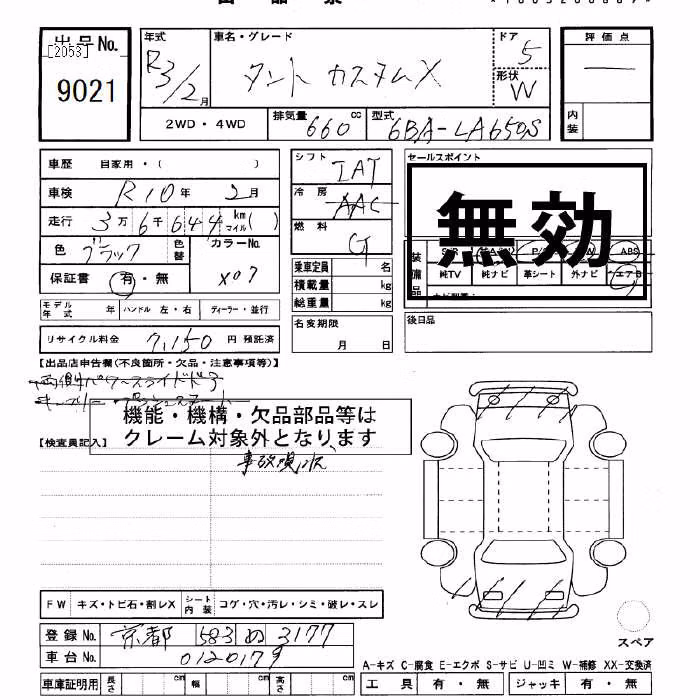 出品No.
[2053]
9021
年式
R3/2月
車名・グレード
タント カスタムX
ドア
5
形状
W
評価点
内装
2WD・4WD
排気量
660 cc
型式
6BA-LA650S
車歴 自家用・( )
車検 R10年 2月
走行 3万6千644 km マイル( )
色 ブラック
色替
カラーNo.
X07
保証書 有・無
モデル年式 年 ハンドル 左・右 ディーラー・並行
リサイクル料金 7,150 円 預託済
シフト IAT
冷房 AAC
燃料 G
乗車定員 名
積載量 kg
総重量 kg
名変期限
月 日
セールスポイント
無効
装備品
ABS
純TV 純ナビ 革シート 外ナビ エアB
後日品
【出品店申告欄(不良箇所・欠品・注意事項等)】
両側パワースライドドア
機能・機構・欠品部品等は
クレーム対象外となります
【検査員記入】
事故現状
FW キズ・トビ石・割レX
シート内装 コゲ・穴・汚レ・シミ・破レ・スレ
登録No. 京都 583 め 3177
車台No. 0120179
車庫証明用 長さ cm 幅 cm 高さ cm
スペア
A-キズ C-腐食 E-エクボ S-サビ U-凹ミ W-補修 XX-交換済
工具 有・無 ジャッキ 有・無